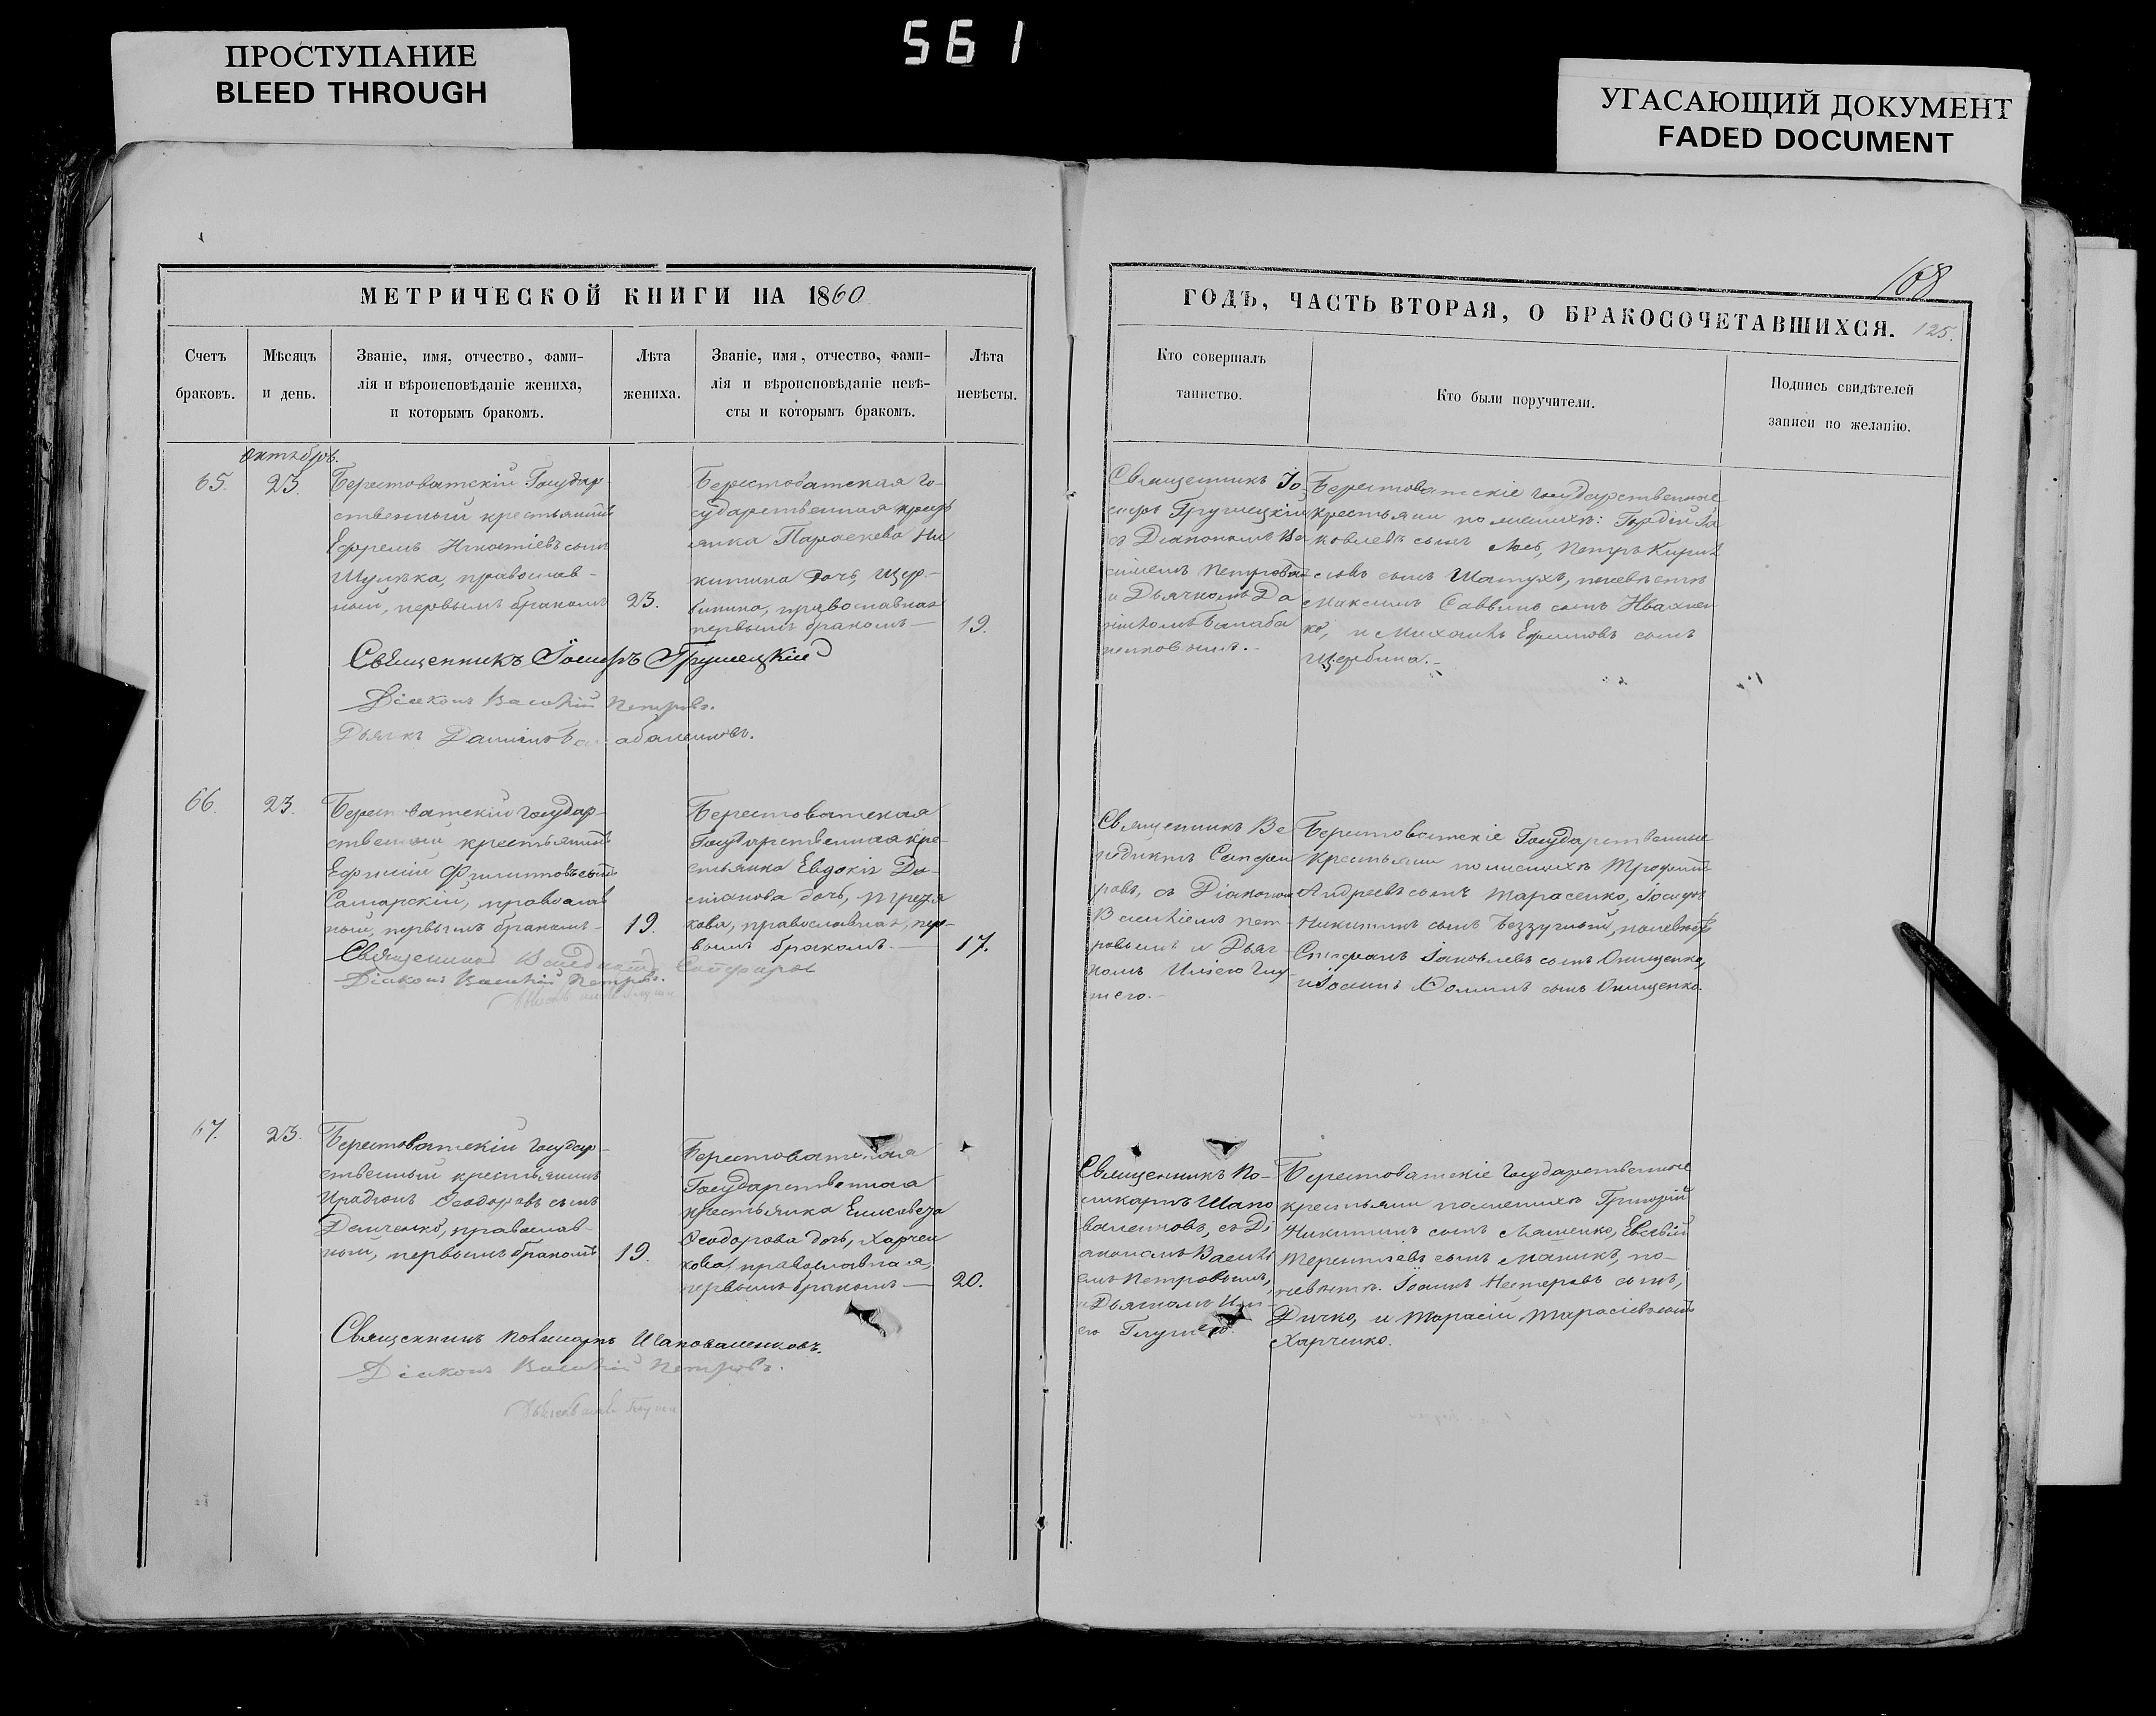 561
ПРОСТУПАНИЕ
BLEED THROUGH
УГАСАЮЩИЙ ДОКУМЕНТ
FADED DOCUMENT
168
МЕТРИЧЕСКОЙ КНИГИ НА 1860
ГОДЪ, ЧАСТЬ ВТОРАЯ, О БРАКОСОЧЕТАВШИХСЯ. 125.
Счетъ
браковъ.
Мѣсяцъ
и день.
Званіе, имя, отчество, фами-
лія и вѣроисповѣданіе жениха,
и которымъ бракомъ.
Лѣта
жениха.
Званіе, имя, отчество, фами-
лія и вѣроисповѣданіе невѣ-
сты и которымъ бракомъ.
Лѣта
невѣсты.
Кто совершалъ
таинство.
Кто были поручители.
Подпись свидѣтелей
записи по желанію.
Октябрь.
65.
23.
Берестоватскій Государ
ственный крестьянинъ
Ефремъ Игнатіевъ сынъ
Шулѣка, православ-
ный, первымъ бракомъ
23.
Берестоватская Го-
сударственная крест
янка Параскева Ни
китина дочь, Щер-
бинина, православная
первымъ бракомъ —
19.
Священникъ Іо
сифъ Грушецкій
съ Діакономъ Ва
силіемъ Петровым
и Дьячкомъ Да
ніиломъ Балаба
ненковымъ.-
Берестоватскіе государственные
крестьяни по женихѣ: Гордій Іа
ковлевъ сынъ Петръ Кирил
ловъ сынъ Шатухъ, по невѣстѣ
Максимъ Саввинъ сынъ Ивахнен
ко, и Михаилъ Ефимовъ сынъ
Щербина.-
Священникъ Іосифъ Грушецкій
Діаконъ Василій Петровъ.
Дьячкъ Даніилъ Балабаненковъ.
66.
23.
Берестоватскій государ-
ственный крестьянинъ
Ефимій Филиповъ сынъ
Самарскій, православ
ный, первымъ бракомъ-
19.
Берестоватская
Государственная кре-
стьянка Евдокія Да-
міанова дочь,
кова, православная, пер-
вымъ бракомъ. —
17.
Священникъ Ве
недиктъ Сапфи
ровъ, съ Діакономъ
Василіемъ Пет-
ровымъ и Дьяч-
комъ Иліею Глу-
шего.-
Берестоватскіе Государственные
Крестьяни по женихѣ Трофимъ
Андреевъ сынъ Тарасенко, Іосифъ
Никитинъ сынъ Беззуглый, по невѣстѣ
Стефанъ Іаковлевъ сынъ Онищенко,
и Іоаннъ Фоминъ сынъ Онищенко.
Священникъ Венедиктъ Сапфировъ
Діаконъ Василій Петровъ.
67.
23.
Берестоватскій государ-
ственный крестьянинъ
Иродіонъ Феодоровъ сынъ
Демченко, православ-
ный, первымъ бракомъ
19.
Берестоватская
Государственная
крестьянка Елисавета
Феодорова дочь, Харчен
кова, православная,
первымъ бракомъ —
20.
Священникъ По-
ликарпъ Шапо
валенковъ, съ Ді
акономъ Василі
емъ Петровымъ,
и Дьячкомъ Илі-
ею Глушего.
Берестоватскіе государственные
крестьяни по женихѣ Григорій
Никитинъ сынъ Ляшенко, Евсевій
Терентіевъ сынъ Маникъ, по-
невѣстѣ. Іоаннъ Нестеровъ сынъ,
Дичко, и Тарасій Тарасіевъ сынъ
Харченко.
Священникъ Поликарпъ Шаповаленковъ.
Діаконъ Василій Петровъ.